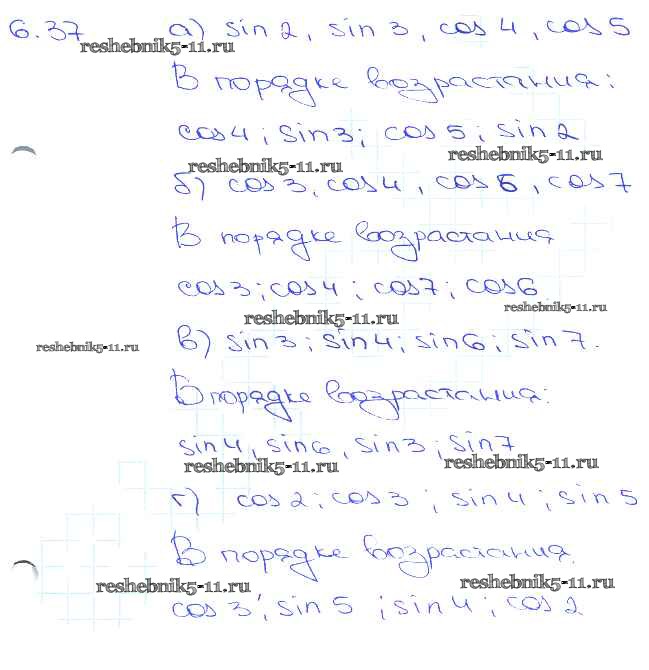 6.37 а) sin 2, sin 3, cos 4, cos 5
reshebnik5-11.ru
В порядке возрастания:
cos 4; sin 3; cos 5; sin 2
reshebnik5-11.ru
reshebnik5-11.ru
б) cos 3, cos 4, cos 6, cos 7
В порядке возрастания
cos 3; cos 4; cos 7; cos 6
reshebnik5-11.ru
reshebnik5-11.ru
reshebnik5-11.ru
в) sin 3; sin 4; sin 6; sin 7.
В порядке возрастания:
sin 4, sin 6, sin 3; sin 7
reshebnik5-11.ru
reshebnik5-11.ru
г) cos 2; cos 3; sin 4; sin 5
В порядке возрастания.
reshebnik5-11.ru
reshebnik5-11.ru
cos 3; sin 5; sin 4; cos 2